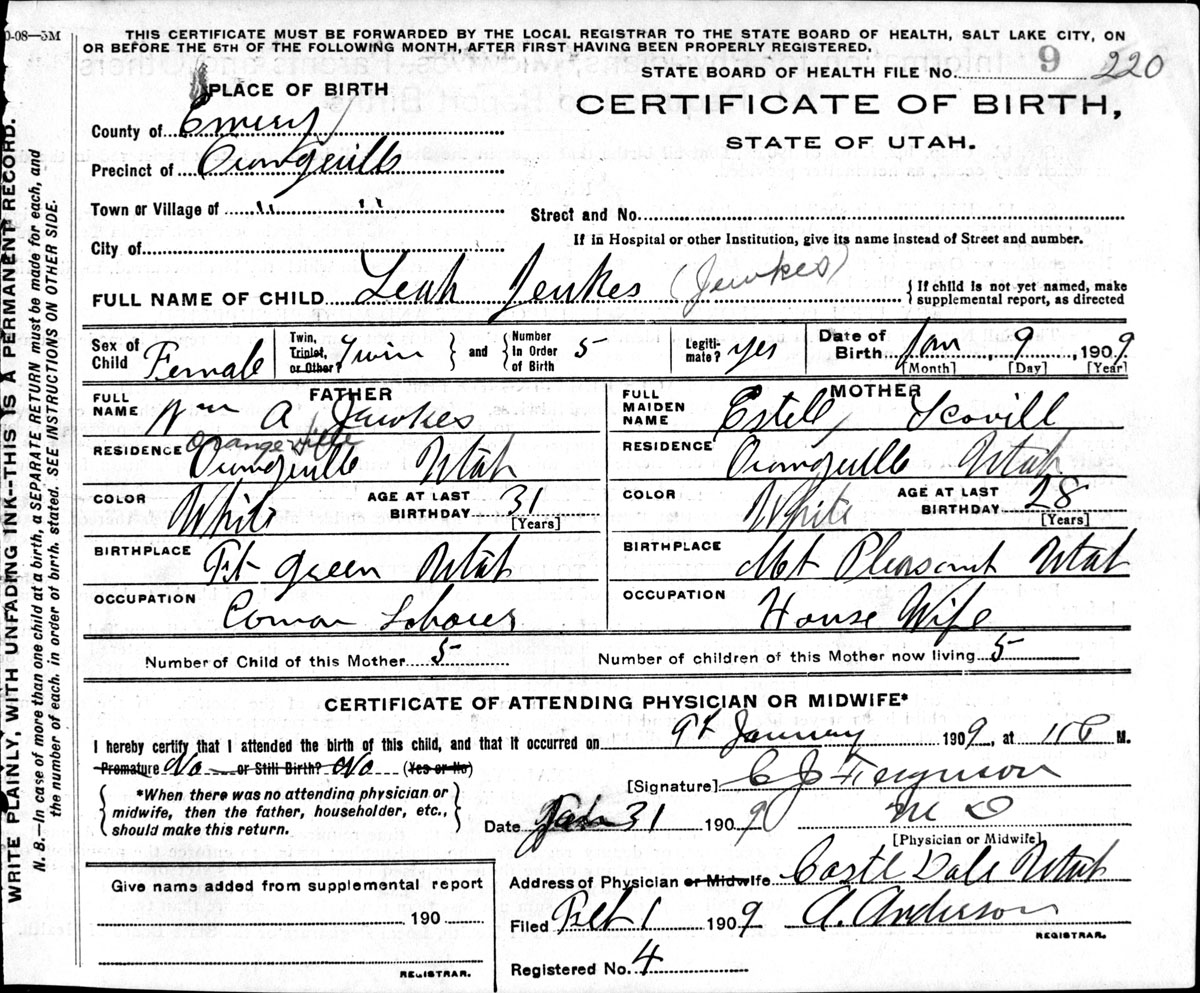 0-08—3M
THIS CERTIFICATE MUST BE FORWARDED BY THE LOCAL REGISTRAR TO THE STATE BOARD OF HEALTH, SALT LAKE CITY, ON
OR BEFORE THE 5TH OF THE FOLLOWING MONTH, AFTER FIRST HAVING BEEN PROPERLY REGISTERED.
STATE BOARD OF HEALTH FILE No. 9 220
PLACE OF BIRTH
CERTIFICATE OF BIRTH,
STATE OF UTAH.
County of Emery
Precinct of Orangeville
Town or Village of " "
Street and No.
City of
If in Hospital or other Institution, give its name instead of Street and number.
FULL NAME OF CHILD Leah Jewkes (Jewkes)
{ If child is not yet named, make
supplemental report, as directed
Sex of Child Female
Twin, Triplet, or Other? Twin } and { Number In Order of Birth 5
Legiti-mate? yes
Date of Birth Jan, 9, 1909
[Month] [Day] [Year]
FATHER
FULL NAME Wm A Jewkes
RESIDENCE Orangeville
Orangeville Utah
COLOR White
AGE AT LAST BIRTHDAY 31
[Years]
BIRTHPLACE Ft Green Utah
OCCUPATION Coman Laborer
MOTHER
FULL MAIDEN NAME Estell Scovill
RESIDENCE Orangeville Utah
COLOR White
AGE AT LAST BIRTHDAY 28
[Years]
BIRTHPLACE Mt Pleasant Utah
OCCUPATION House Wife
Number of Child of this Mother 5
Number of children of this Mother now living 5
CERTIFICATE OF ATTENDING PHYSICIAN OR MIDWIFE*
I hereby certify that I attended the birth of this child, and that it occurred on 9th January 1909, at 1 M.
Premature No or Still Birth? No (Yes or No)
{ *When there was no attending physician or
midwife, then the father, householder, etc.,
should make this return. }
[Signature] C J Ferguson
Date Jan 31 1909 M D
[Physician or Midwife]
Address of Physician or Midwife Castle Dale Utah
Filed Feb 1 1909 A. Anderson
REGISTRAR.
Registered No. 4
Give name added from supplemental report
190
REGISTRAR.
WRITE PLAINLY, WITH UNFADING INK--THIS IS A PERMANENT RECORD.
N. B.—In case of more than one child at a birth, a SEPARATE RETURN must be made for each, and
the number of each, in order of birth, stated. SEE INSTRUCTIONS ON OTHER SIDE.